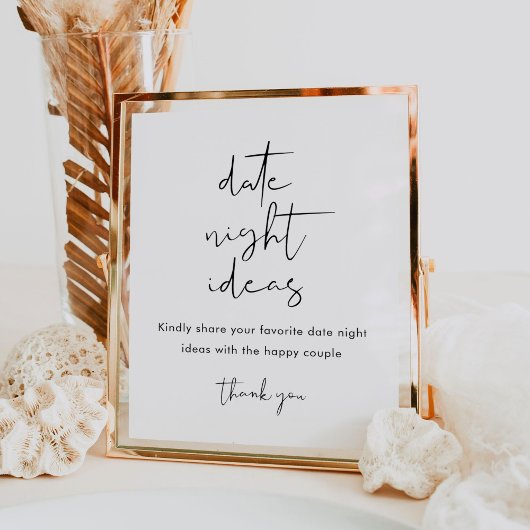 date
night
ideas
Kindly share your favorite date night
ideas with the happy couple
thank you